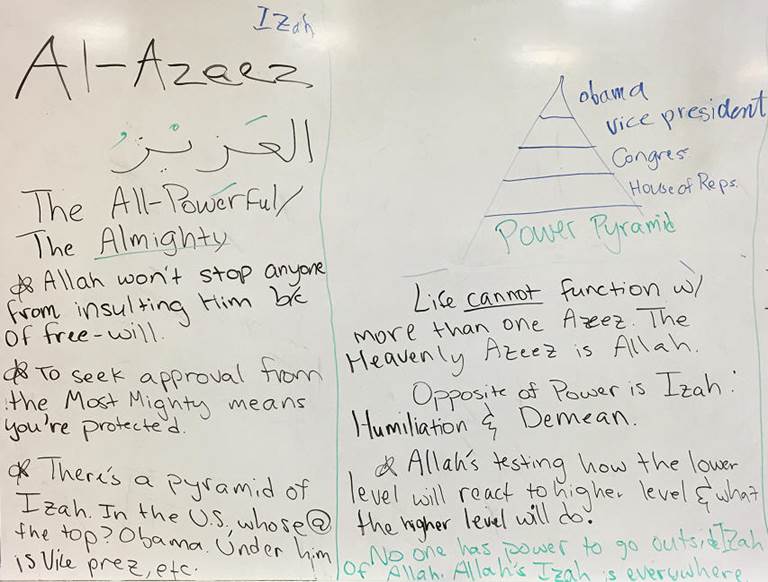 Izah
Al-Azeez
العَزيْزُ
The All-Powerful/
The Almighty
Allah won't stop anyone
from insulting Him b/c
of free-will.
To seek approval from
the Most Mighty means
you're protected.
There's a pyramid of
Izah. In the U.S., whose @
the top? Obama. Under him
is Vice prez, etc.
Obama
vice president
Congres
House of Reps.
Power Pyramid
Life cannot function w/
more than one Azeez. The
Heavenly Azeez is Allah.
Opposite of Power is Izah:
Humiliation & Demean.
Allah's testing how the lower
level will react to higher level & what
the higher level will do.
No one has power to go outside Izah
of Allah. Allah's Izah is everywhere